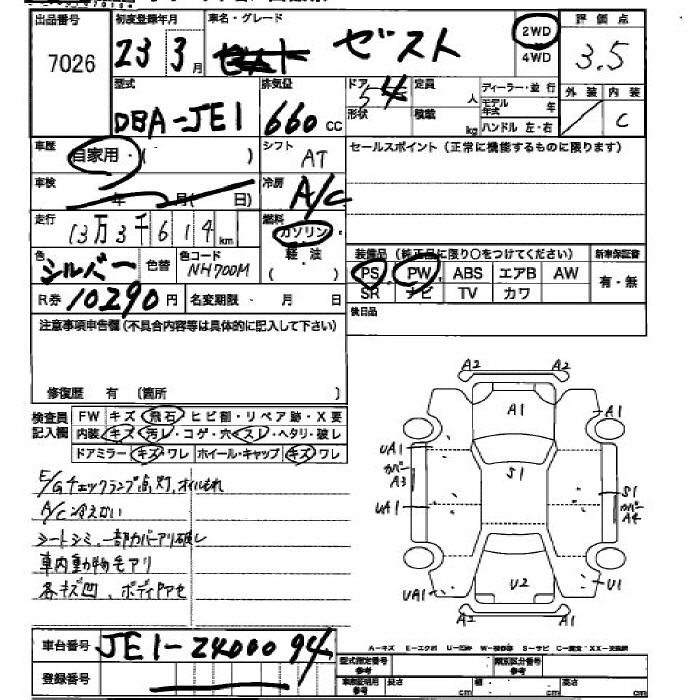 出品番号 初度登録年月 車名・グレード 2WD 評価点
7026 23 3月 ゼスト 4WD 3.5
型式 排気量 ドア 定員 ディーラー・並行 外装 内装
DBA-JE1 660cc 5 4 人 モデル年式 年
形状 積載 kg ハンドル 左・右 C
車歴 自家用・( ) シフト AT セールスポイント(正常に機能するものに限ります)
車検 年 月( 日) 冷房 A/C
走行 13万3千614km 燃料 ガソリン・
軽・油
( )
色 シルバー 色替 色コード NH700M 装備品(純正品に限り○をつけてください) 新車保証書
PS PW ABS エアB AW 有・無
SR ナビ TV カワ
R券 10290円 名変期限 ・ 月 日 後日品
注意事項申告欄(不具合内容等は具体的に記入して下さい)
修復歴 有 〔箇所 〕
検査員記入欄 FW キズ・飛石・ヒビ割・リペア跡・X要
内装 キズ・汚レ・コゲ・穴・スレ・ヘタリ・破レ
ドアミラー キズ・ワレ ホイール・キャップ キズ・ワレ
E/Gチェックランプ点灯、オイルもれ
A/C冷えない
シートシミ、一部カバーアリ破レ
車内動物毛アリ
各キズ凹、ボディヤケセ
A2 A2
A1 A1
UA1
カバー
A3
S1
UA1 S1
カバー
A4
UA1 U2 U1
A1 A1
車台番号 JE1-2400094
登録番号
A-キズ E-エクボ U-凹み W-補修跡 S-サビ C-腐食 XX-交換済
型式指定番号 類別区分番号
車庫証明用参考 長さ cm 幅 cm 高さ cm